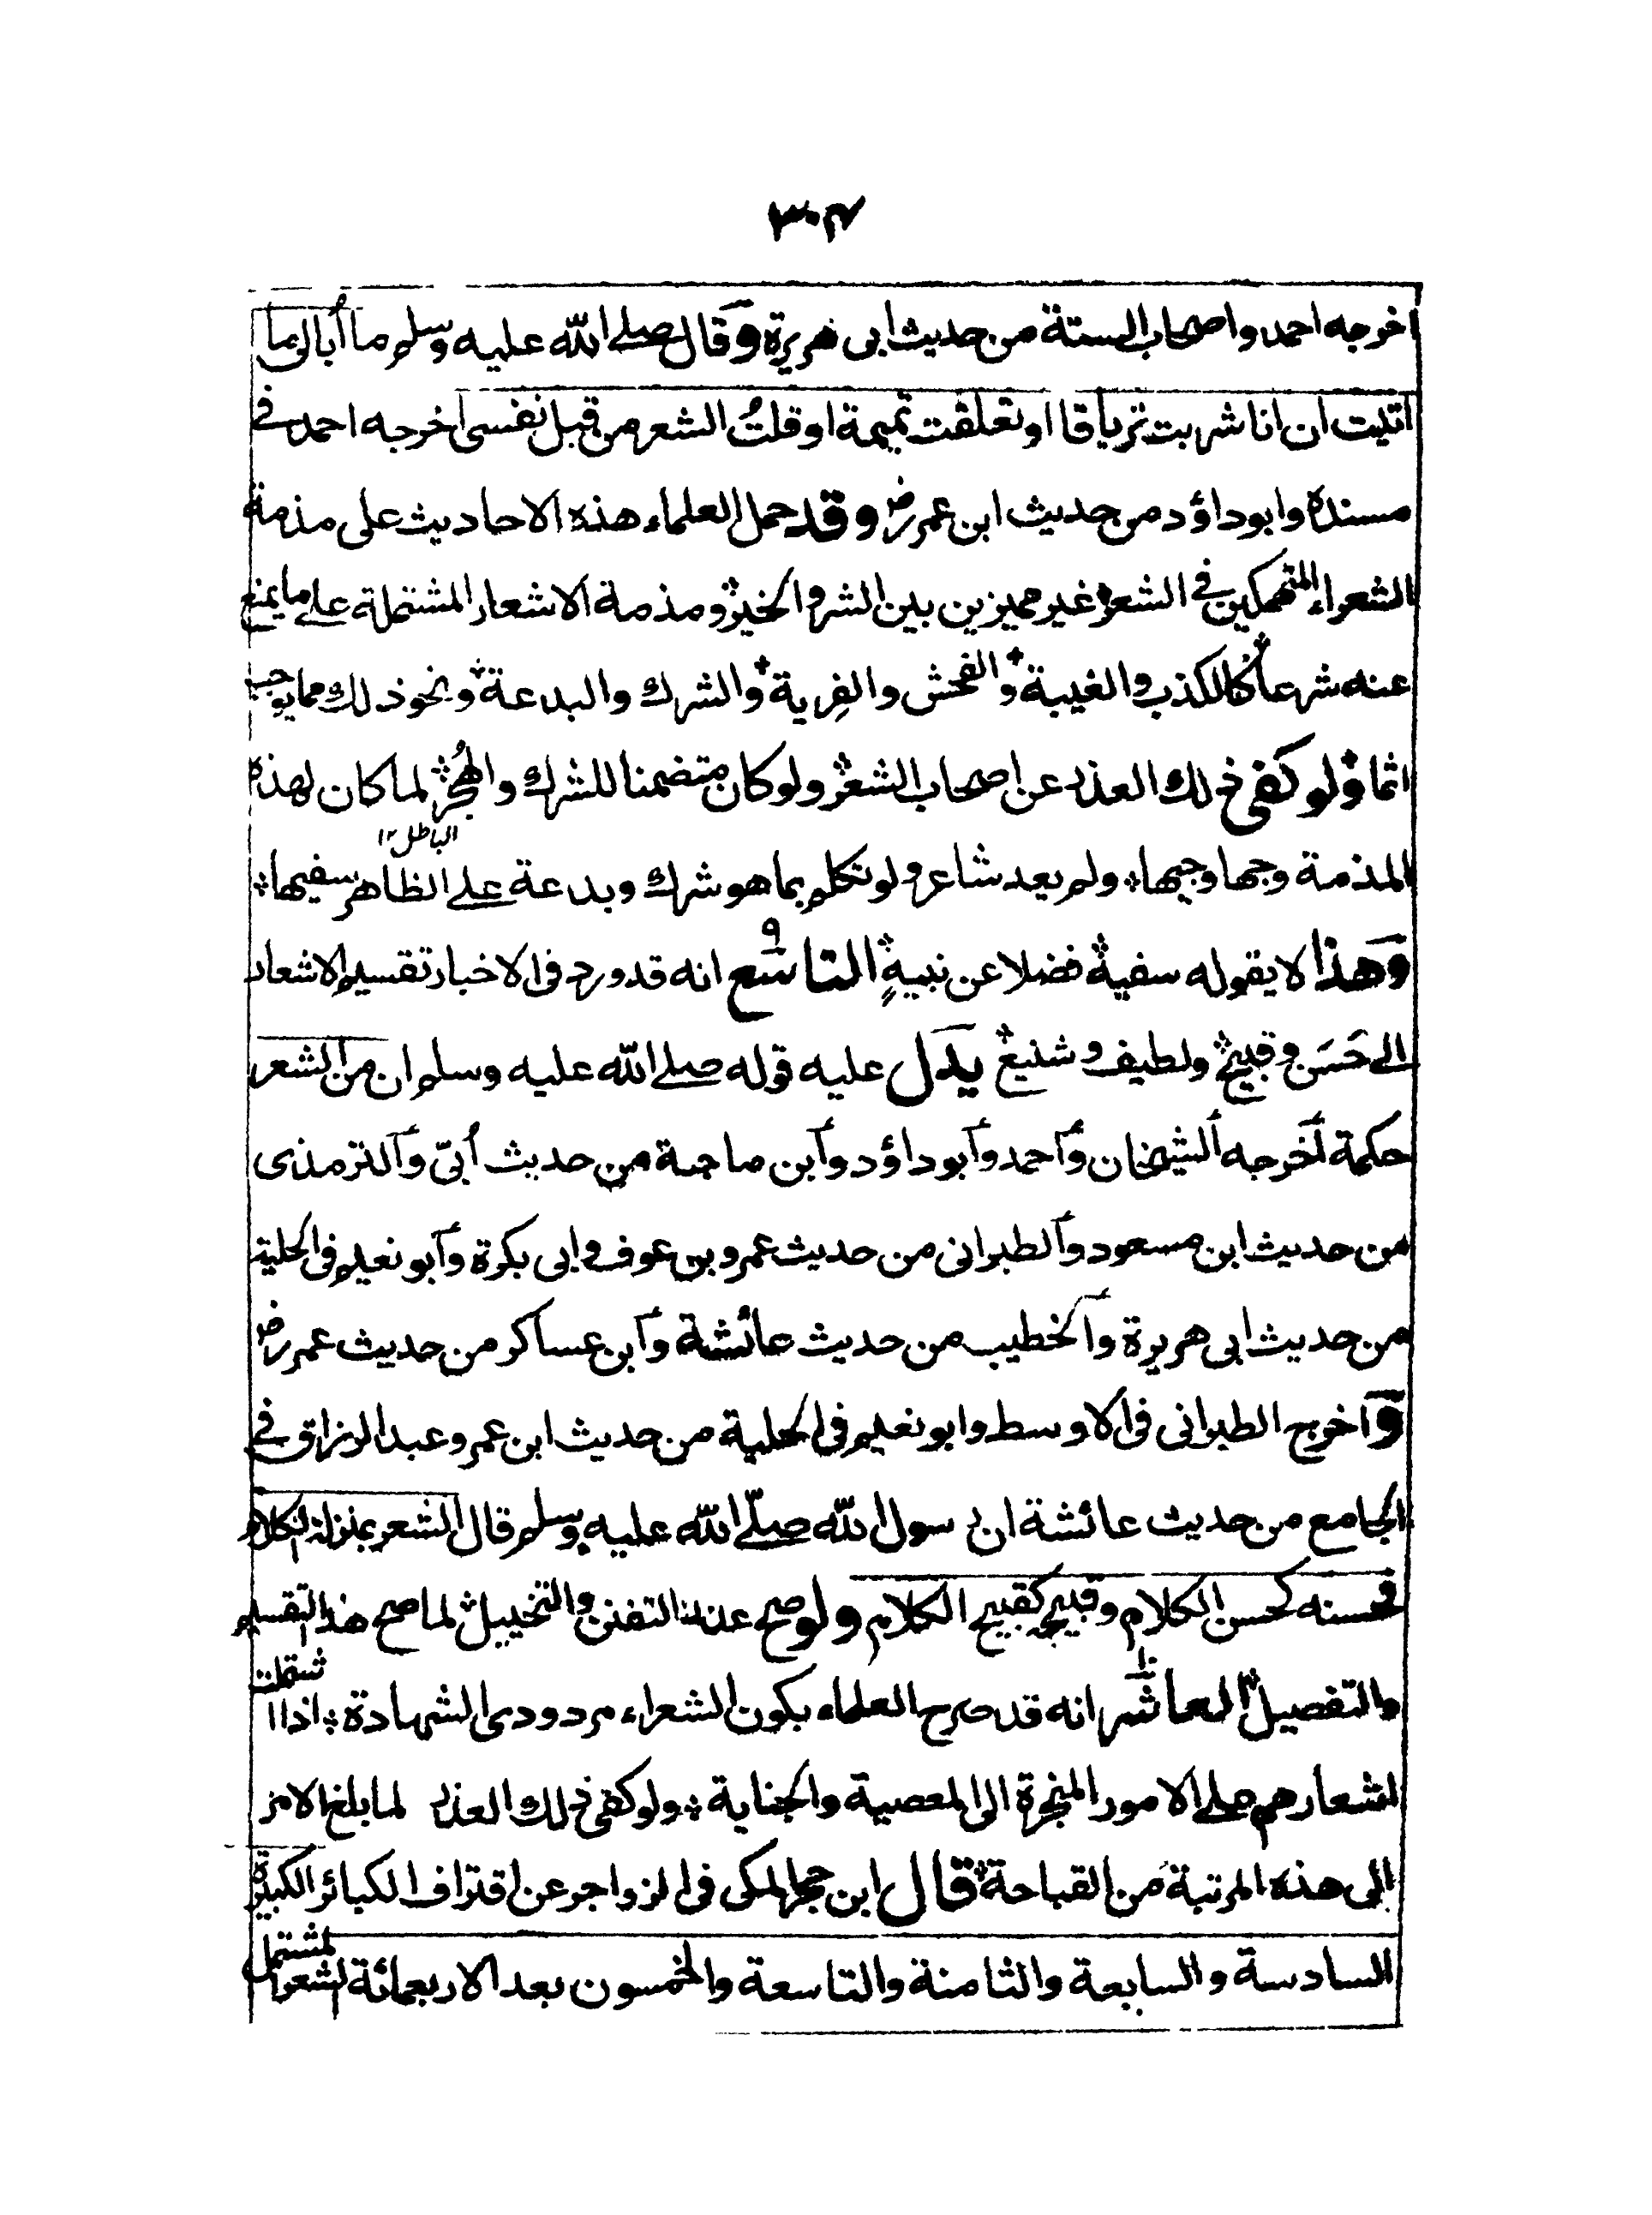 ٣٠٤
اخرجه احمد واصحاب الستة من حديث ابى هريرة وقال صلے الله عليه وسلم ما أبالى ما
اتيت ان انا شربت ترياقا او تعلقت تميمة او قلتُ الشعر من قبل نفسى اخرجه احمد فے
مسنده وابو داؤد من حديث ابن عمر رض وقد حمل العلماء هذه الاحاديث على مذمة
الشعراء المنهمكين فے الشعر غير مميزين بين الشر والخير ومذمة الاشعار المشتملة علے ما يمنع
عنه شرعا كالكذب والغيبة والفحش والفِرية والشرك والبدعة ونحو ذلك مما يوجب
اثما ولو كفى ذلك العذر عن اصحاب الشعر ولو كان متضمنا للشرك والهُجر لما كان لهذه
الباطل ١٢
المذمة وجها وجيها ولم يعد شاعر ولو تكلم بما هو شرك وبدعة علے الظاهر سفيها
وهذا لا يقوله سفيه فضلا عن نبيهٍ التاسع ٩ انه قد ورد فى الاخبار تقسيم الاشعار
الے حَسَن وقبيح ولطيف وشنيع يدل عليه قوله صلے الله عليه وسلم ان من الشعر
حكمة اخرجه الشيخان واحمد وابو داؤد وابن ماجة من حديث أبىّ والترمذى
من حديث ابن مسعود والطبرانى من حديث عمرو بن عوف وابى بكرة وابو نعيم فى الحلية
من حديث ابى هريرة والخطيب من حديث عائشة وابن عساكر من حديث عمر رض
واخرج الطبرانى فى الاوسط وابو نعيم فى الحلية من حديث ابن عمر وعبد الرزاق فے
الجامع من حديث عائشة ان رسول الله صلّے الله عليه وسلم قال الشعر بمنزلة الكلام
فحسنه كحسن الكلام وقبيحه كقبيح الكلام ولو صح عذر التفنن والتخييل لما صح هذا التقسيم
والتفصيل العاشر ١٠ انه قد صرح العلماء بكون الشعراء مردودى الشهادة اذا اشتملت
اشعارهم علے الامور المنجرة الى المعصية والجناية ولو كفى ذلك العذر لما بلغ الامر
الى هذه المرتبة من القباحة قال ابن حجر المكى فى الزواجر عن اقتراف الكبائر الكبيرة
السادسة والسابعة والثامنة والتاسعة والخمسون بعد الاربعمائة الشعر المشتمل